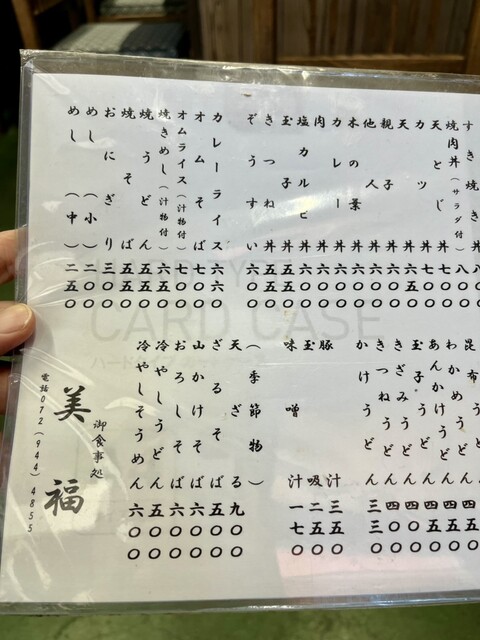 すき焼き丼 八〇〇
焼肉丼(サラダ付) 八〇〇
天とじ丼 七〇〇
カツ丼 七〇〇
天丼 六五〇
親子丼 六〇〇
他人丼 六〇〇
木の葉丼 六〇〇
カレー丼 六〇〇
肉丼 六〇〇
塩カルビ丼 六〇〇
玉子丼 五五〇
きつね丼 五五〇
ぞうすい 六〇〇
カレーライス 六〇〇
オムそば 七〇〇
オムライス(汁物付) 七〇〇
焼きめし(汁物付) 六五〇
焼うどん 五五〇
焼そば 五五〇
おにぎり 三〇〇
めし(小) 二〇〇
めし(中) 二五〇
昆布うどん 四五〇
わかめうどん 四五〇
あんかけうどん 四五〇
玉子うどん 四五〇
きざみうどん 四〇〇
きつねうどん 四〇〇
かけうどん 三〇〇
豚汁 三五〇
玉吸 二五〇
味噌汁 一七〇
(季節物)
天ざる 九〇〇
ざるそば 五〇〇
山かけそば 六〇〇
おろしそば 六〇〇
冷やしうどん 五〇〇
冷やしそうめん 六〇〇
御食事処
美福
電話072(944)4855
CARD CASE